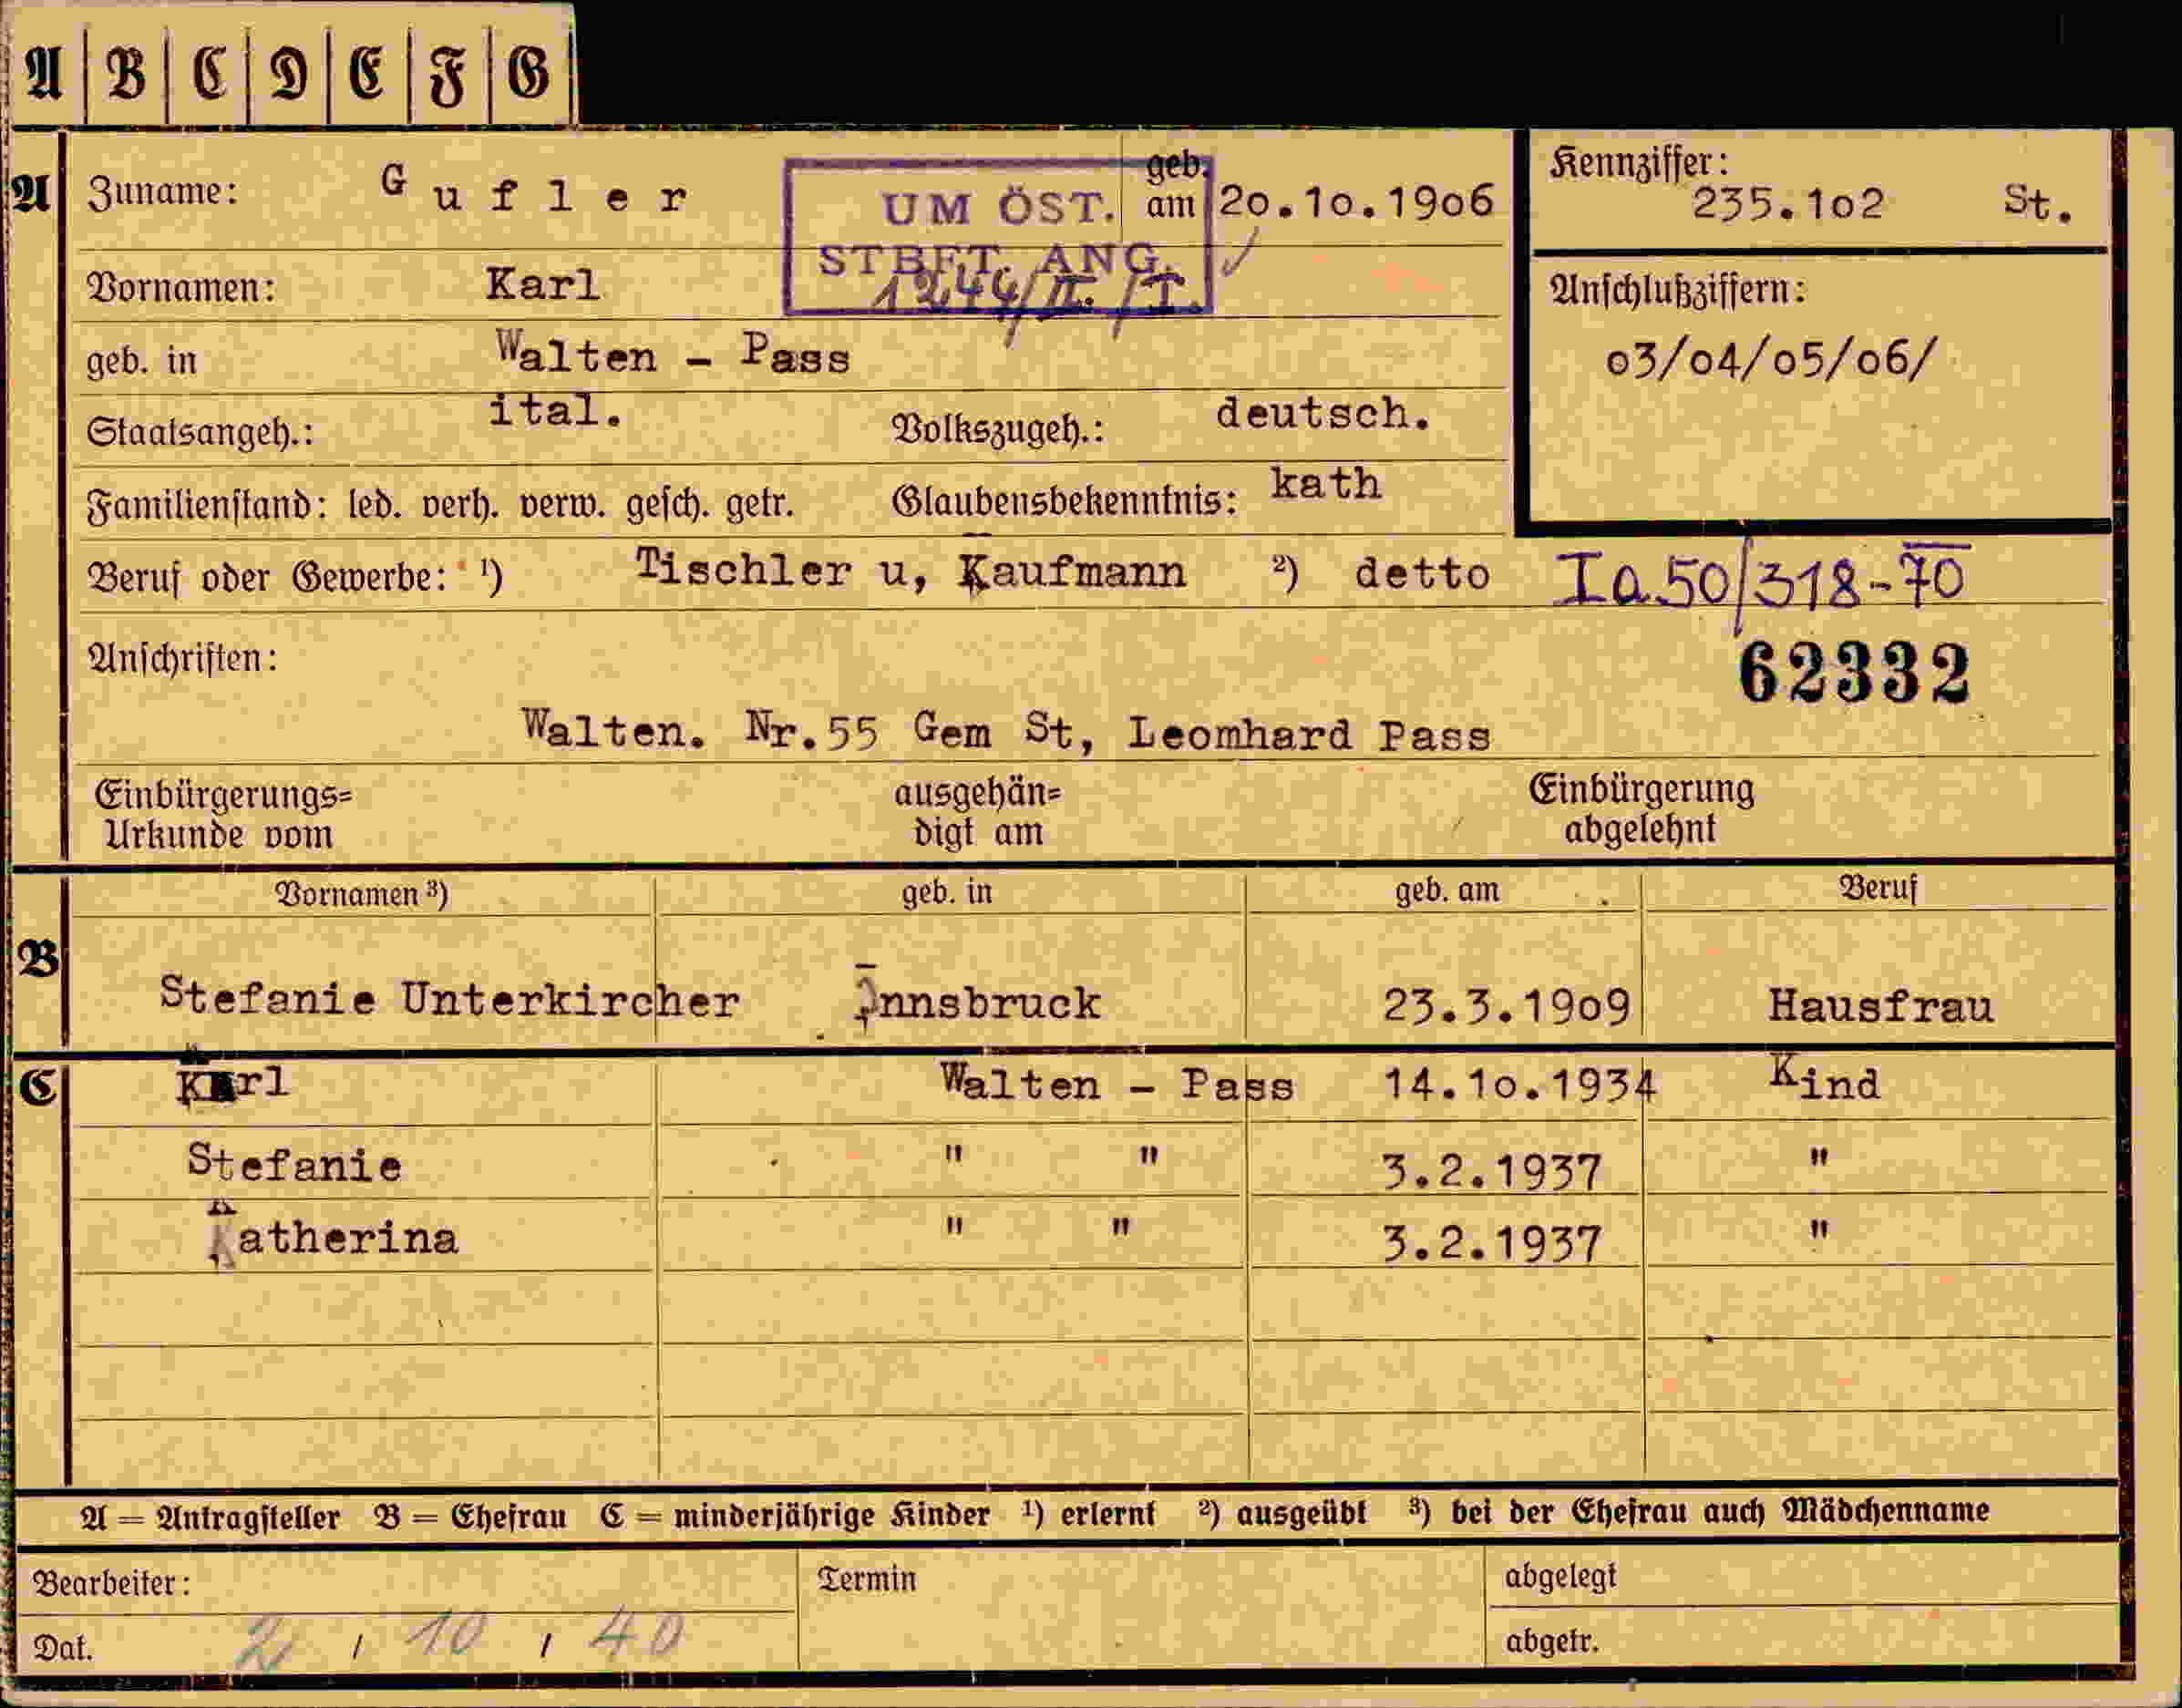 A B C D E F G
A Zuname: Gufler geb. am 20.10.1906
UM ÖST.
STBFT. ANG.
1244/II./I.
Kennziffer:
235.102 St.
Vornamen: Karl
Anschlußziffern:
03/04/05/06/
geb. in Walten - Pass
Staatsangeh.: ital. Volkszugeh.: deutsch.
Familienstand: led. verh. verw. gesch. getr. Glaubensbekenntnis: kath
Beruf oder Gewerbe: 1) Tischler u, Kaufmann 2) detto
Ia.50/318-70
Anschriften:
62332
Walten. Nr.55 Gem St, Leomhard Pass
Einbürgerungs= ausgehän= Einbürgerung
Urkunde vom digt am abgelehnt
Vornamen 3) geb. in geb. am Beruf
B
Stefanie Unterkircher Innsbruck 23.3.1909 Hausfrau
C Karl Walten - Pass 14.10.1934 Kind
Stefanie " " 3.2.1937 "
Katherina " " 3.2.1937 "
A = Antragsteller B = Ehefrau C = minderjährige Kinder 1) erlernt 2) ausgeübt 3) bei der Ehefrau auch Mädchenname
Bearbeiter: Termin abgelegt
Dat. 2 / 10 / 40 abgetr.